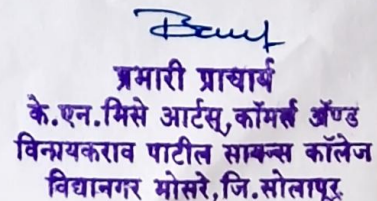 प्रभारी प्राचार्य
के.एन.भिसे आर्टस्,कॉमर्स ॲण्ड
विनायकराव पाटील सायन्स कॉलेज
विद्यानगर भोसरे,जि.सोलापूर